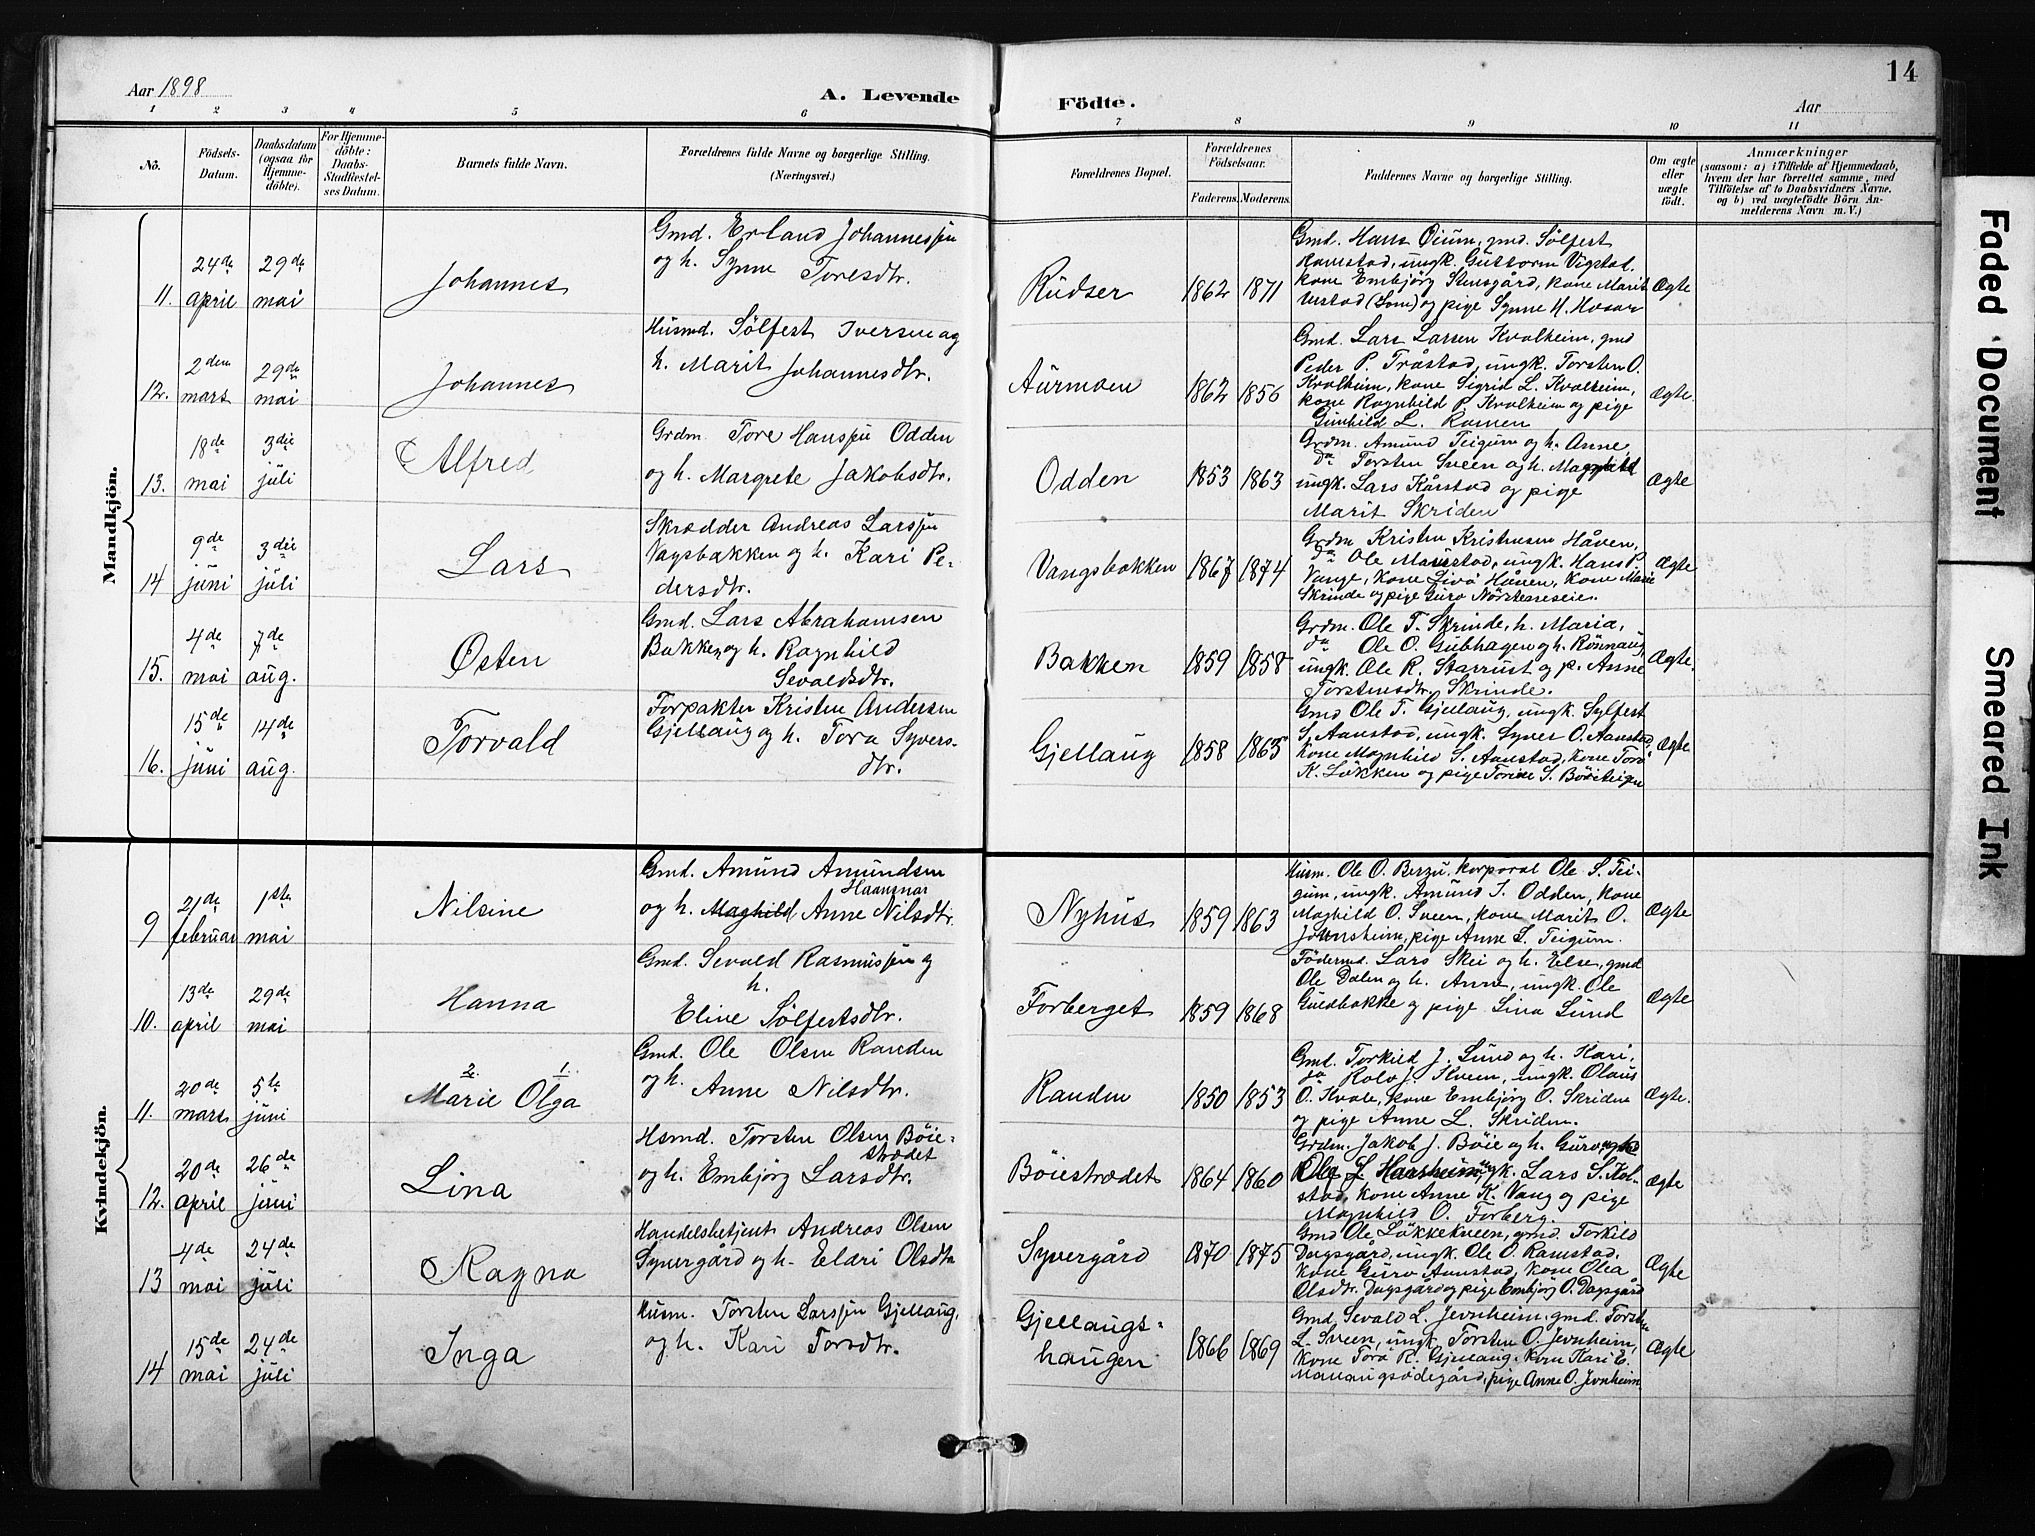 Aar 1898
A. Levende
Födte.
Aar
14
1 2 3 4 5 6 7 8 9 10 11
No.
Födsels-
Datum.
Daabsdatum
(ogsaa for
Hjemme-
döbte).
For Hjemme-
döbte:
Daabs-
Stadfæstel-
ses Datum.
Barnets fulde Navn.
Forældrenes fulde Navne og borgerlige Stilling.
(Næringsvei.)
Forældrenes Bopæl.
Forældrenes
Födselsaar.
Faderens. Moderens.
Faddernes Navne og borgerlige Stilling.
Om ægte
eller
uægte
födt.
Anmærkninger
(saasom: a) i Tilfælde af Hjemmedaab,
hvem der har forrettet samme, med
Tilföielse af to Daabsvidners Navne.
og b) ved uægtefödte Börn An-
melderens Navn m. V.)
Mandkjön.
11. 24de april
29de mai
Johannes
Gmd. Erland Johannessen
og h. Synne Toresdtr.
Rudser
1862 1871
Gmd. Hans Oium, gmd. Sölfest
Ramstad, ungk. Guttorm Vigstal.
kone Embjörg Stensgård, kone Marit
Ustad (Lom) og pige Synne H.
Ægte
12. 2den mars
29de mai
Johannes
Husmd. Sölfest Iversen og
h. Marit Johannesdtr.
Aurmoen
1862 1856
Gmd. Lars Larsen Kvalheim, gmd
Peder P. Tråstad, ungk. Torsten O.
Kvalheim, kone Sigrid L. Kvalheim,
kone Ragnhild P. Kvalheim og pige
Gunhild L. Ramen
Ægte.
13. 18de mai
3die juli
Alfred
Grdm. Tore Hanssen Odden
og h. Margrete Jakobsdtr.
Odden
1853 1863
Grdm. Amund Teigum og h. Anne
do Torsten Sveen og h. Magnhild
ungk. Lars Kårstad og pige
Marit Skriden
Ægte
14 9de juni
3die juli
Lars
Skrædder Andreas Larssen
Vangsbakken og h. Kari Pe-
dersdtr.
Vangsbakken
1867 1874
Grdm Kristen Kristensen Håven,
do Ole Maurstad, ungk. Hans P.
Vange, kone Livö Håven, kone Marie
Skrinde og pige Guro
Ægte
15. 4de mai
7de aug.
Østen
Gmd. Lars Abrahamsen
Bakken og h. Ragnhild
Sevaldsdtr.
Bakken
1859 1858
Grdm. Ole T. Skrinde, h. Maria,
do Ole O. Gubhagen og h. Rönnaug,
ungk. Ole R. Starrust og p. Anne
Torstensdtr. Skrinde.
Ægte.
16. 15de juni
14de aug.
Torvald
Forpakter Kristen Andersen
Gjellaug og h. Tora Syvers-
dtr.
Gjellaug
1858 1865
Gmd Ole T. Gjellaug, ungk. Sylfest
S. Aanstad, ungk. Syver O. Aanstad,
kone Magnhild S. Aanstad, kone Tora
K. Lökken og pige Torine S. Böisteigen
Ægte
Kvindekjön.
9 21de februar
1ste mai
Nilsine
Gmd. Amund Amundsen
Haangnar
og h. Maghild Anne Nilsdtr.
Nyhus
1859 1863
Husm. Ole O. Berzu. korporal Ole S. Tei-
gum, ungk. Amund T. Odden, kone
Maghild O. Sveen, kone Marit O.
pige Anne S. Teigum.
Ægte
10. 13de april
29de mai
Hanna
Gmd. Sevald Rasmussen og
h.
Eline Sölfestsdtr.
Forberget
1859 1868
Födermd. Lars Skei og h. Else, gmd
Ole Dalen og h. Anne, ungk. Ole
Guldbakke og pige Lina Lund
Ægte
11. 20de mars
5te juni
2. 1.
Marie Olga
Gmd. Ole Olsen Randen
og h. Anne Nilsdtr.
Randen
1850 1853
Gmd. Torkild J. Lund og h. Kari,
do Rolv J. Kveen, ungk. Olaus
O. Kvale, kone Embjörg O. Skriden
og pige Anne L. Skriden.
Ægte.
12. 20de april
26de juni
Lina
Hsmd. Torsten Olsen Böie-
strædet
og h. Embjörg Larsdtr.
Böiestrædet
1864 1860
Grdm. Jakob J. Böie og h. Guro,
ungk. Lars S. Kol-
stad, kone Anne K. Vang og pige
Magnhild O. Forberg.
Ægte
13 4de mai
24de juli
Ragna
Handelsbetjent Andreas Olsen
Syvergård og h. Elari Olsdtr
Syvergård
1870 1875
Gmd Ole Lökkekveen, gmd. Torkild
Dagsgård, ungk. Ole O. Ramstad,
kone Guro Aanstad, kone Olea
Olsdtr. Dagsgård og pige Embjörg O. Dagsgård
Ægte
14 15de mai
24de juli
Inga
Husm. Torsten Larssen Gjellaug,
og h. Kari Torsdtr.
Gjellaugs-
haugen
1866 1869
Gmd. Sevald L. Jevnheim, gmd. Torsten
L. Sveen, ungk. Torsten O. Jevnheim,
kone Tora R. Gjellaug, kone Kari E.
pige Anne O. Jevnheim
Ægte
Faded Document
Smeared Ink